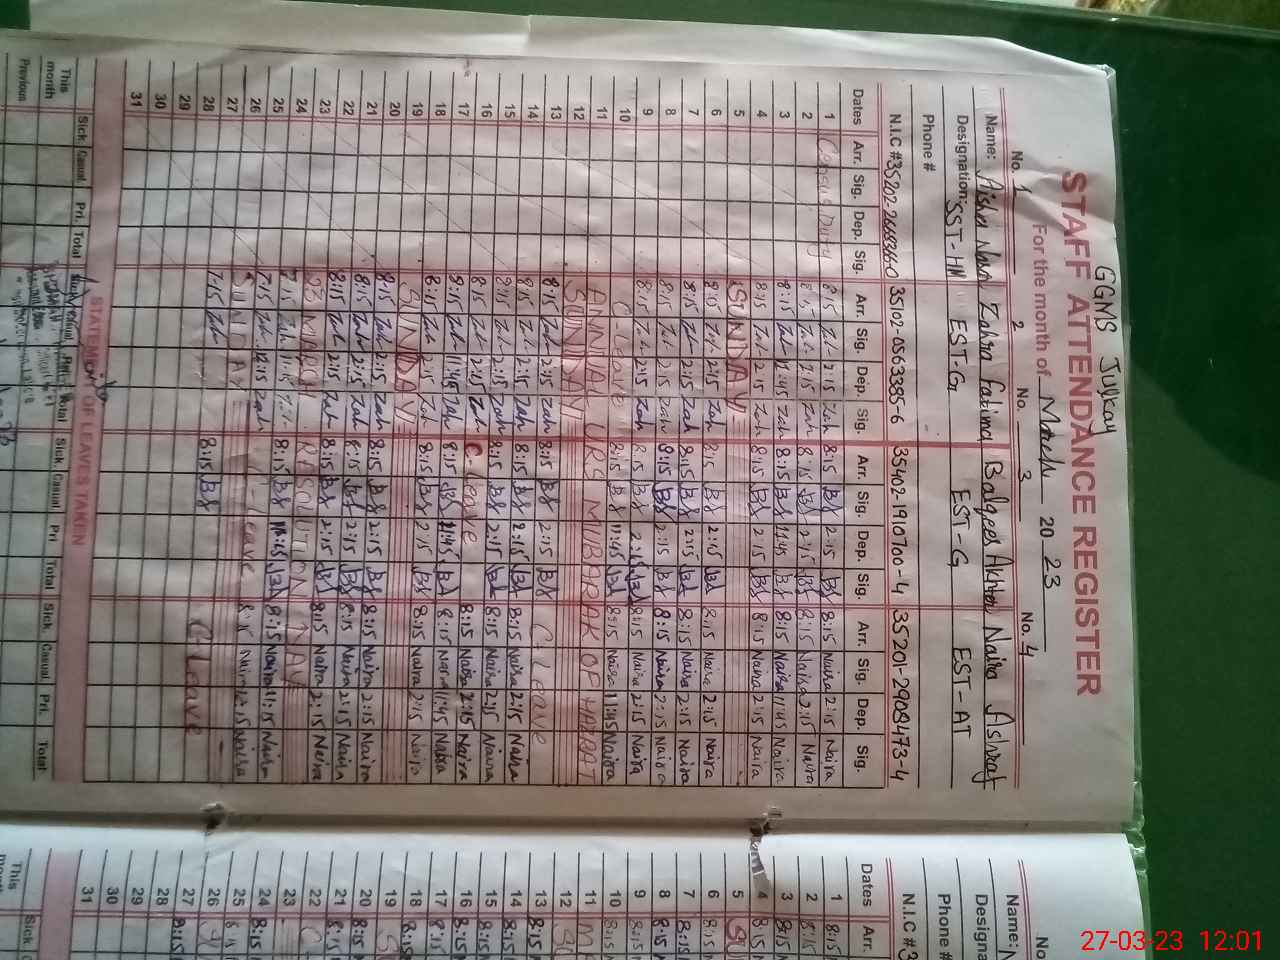 GGMS Julkay
STAFF ATTENDANCE REGISTER
For the month of March 2023
No. 1 No. 2 No. 3 No. 4
Name: Zahra Fatima Balqees Akhter Naira Ashraf
Designation: SST-HM EST-G EST-G EST-AT
Phone #
N.I.C # 35102-0563385-6 35402-1910700-4 35201-2908473-4
Dates Arr. Sig. Dep. Sig. Arr. Sig. Dep. Sig. Arr. Sig. Dep. Sig. Arr. Sig. Dep. Sig.
1 8:15 Zah 2:15 Zah 8:15 2:15 8:15 Naira 2:15 Naira
2 Zah 2:15 Zah 8:15 2:15 8:15 Naira 2:15 Naira
3 8:15 Zah 11:45 Zah 8:15 11:45 8:15 Naira 11:45 Naira
4 8:15 Zah 2:15 Zah 8:15 2:15 8:15 Naira 2:15 Naira
5 SUNDAY
6 8:15 Zah 2:15 Zah 8:15 2:15 8:15 Naira 2:15 Naira
7 8:15 Zah 2:15 Zah 8:15 2:15 8:15 Naira 2:15 Naira
8 8:15 Zah 2:15 Zah 8:15 2:15 8:15 Naira 2:15 Naira
9 8:15 Zah 2:15 Zah 8:15 2:15 8:15 Naira 2:15 Naira
10 C-Leave 8:15 11:45 8:15 Naira 11:45 Naira
11 ANNUAL URS MUBARAK OF HAZRAT
12 SUNDAY
13 8:15 Zah 2:15 Zah 8:15 2:15 C-Leave
14 8:15 Zah 2:15 Zah 8:15 2:15 8:15 Naira 2:15 Naira
15 8:15 Zah 2:15 Zah 8:15 2:15 8:15 Naira 2:15 Naira
16 8:15 Zah 2:15 Zah C-Leave 8:15 Naira 2:15 Naira
17 8:15 Zah 11:45 Zah 8:15 11:45 8:15 Naira 11:45 Naira
18 8:15 Zah 2:15 Zah 8:15 2:15 8:15 Naira 2:15 Naira
19 SUNDAY
20 8:15 Zah 2:15 Zah 8:15 2:15 8:15 Naira 2:15 Naira
21 8:15 Zah 2:15 Zah 8:15 2:15 8:15 Naira 2:15 Naira
22 8:15 Zah 2:15 Zah 8:15 2:15 8:15 Naira 2:15 Naira
23 23 MARCH RESOLUTION DAY
24 7:15 Zah 11:15 8:15 11:15 8:15 Naira 11:15 Naira
25 7:15 Zah 12:15 Zah C-Leave 8:15 Naira 12:15 Naira
26 SUNDAY
27 7:15 Zah 8:15 C-Leave
28
29
30
31
STATEMENT OF LEAVES TAKEN
Sick. Casual. Pri. Total Casual. Pri. Total Sick. Casual Pri Total Sick. Casual. Pri. Total
This month
Previous
No.
Name:
Designa
Phone #
N.I.C #
Dates Arr.
1 8:15
2 8:15
3 8:15
4 8:15
5
6 8:15
7 8:15
8 8:15
9 8:15
10 8:15
11
12
13 8:15
14 8:15
15 8:15
16 8:15
17 8:15
18 8:15
19
20 8:15
21 8:15
22
23
24 8:15
25 8:15
26
27 8:15
28
29
30
31
Sick
This
27-03-23 12:01